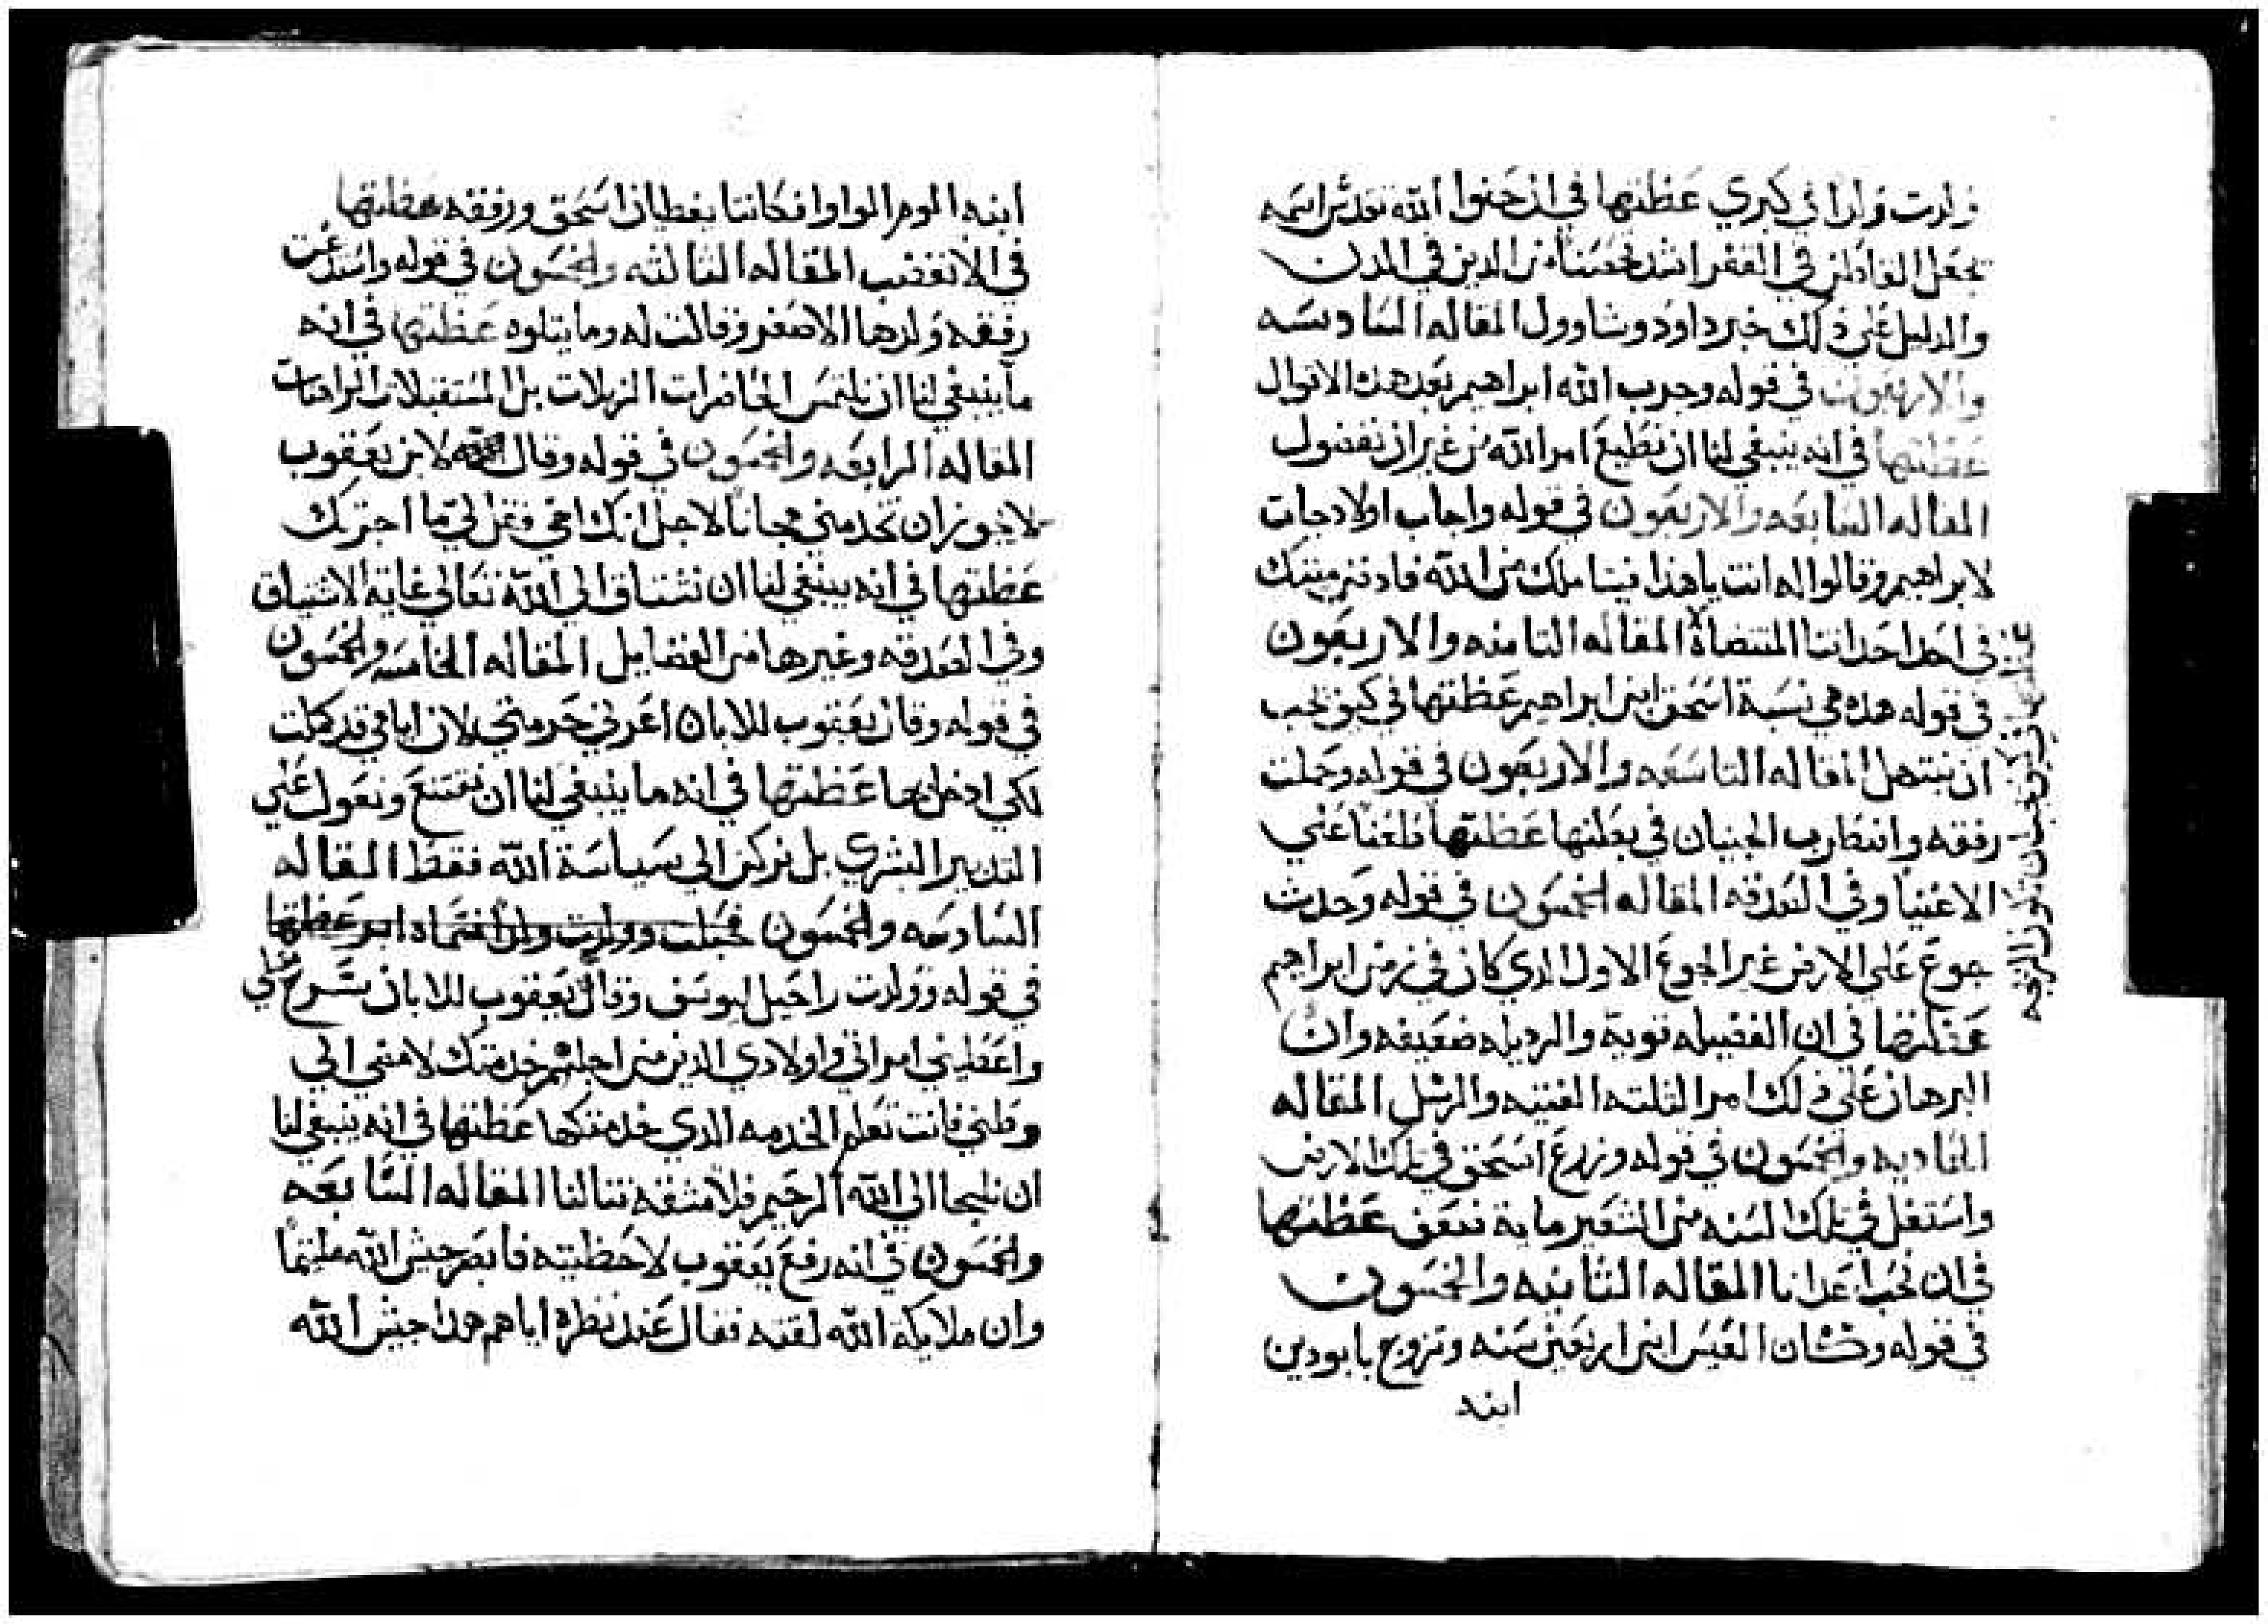 ولدت ولدا في كبري عظتها في ان حنوا الله تقدس اسمه
تجعل القاطنين في القفر اشد تحصنا من الدين في المدن
والدليل علي ذلك خبر داود وشاوول المقاله السادسه
والاربعون في قوله وجرب الله ابراهيم بعد هذه الاقوال
عظتها في انه ينبغي لنا ان نطيع امر الله من غير ان نفضول
المقاله السابعه والاربعون في قوله واجاب اولاد حات
لابراهيم وقالوا له انت يا هذا فينا ملك من الله فادفن ميتك
في احد احداثنا المنتضاة المقاله التامنه والاربعون
في قوله هده هي نسبة اسحق ابن ابراهيم عظتها في كيف يجب
ان نبتهل المقاله التاسعه والاربعون في قوله وحملت
رفقه واضطرب الجنينان في بطنها عظتها طعنا علي
الاغنيا وفي الصدقه المقاله الخمسون في قوله وحدث
جوع علي الارض غير الجوع الاول الدي كان في زمن ابراهيم
عظتها في ان الفضيله قوية والرديله ضعيفه وان
البرهان علي ذلك امر التلته الفتيه والرسل المقاله
الحاديه والخمسون في قوله وزرع اسحق في تلك الارض
واستغل في تلك السنه من الشعير ماية ضعف عظتها
في ان نحب اعدانا المقاله التانيه والخمسون
في قوله وكان العيس ابن اربعين سنه وتزوج يابودين
ابنه
ابنه فكانتا يغطيان اسحق ورفقه عظتها
في الا نغضب المقاله التالته والخمسون في قوله واستدعت
رفقه ولدها الاصغر وقالت له وما يتلوه عظتها في انه
ما ينبغي لنا ان نلتمس الحاضرات الزيلات بل المستقبلات الراهنات
المقاله الرابعه والخمسون في قوله وقال لابن يعقوب
لا يجوز ان تخدمني مجانا لاجل انك اخي فقل لي ما اجرتك
عظتها في انه ينبغي لنا ان نشتاق الي الله تعالي غاية الاشتياق
وفي الصدقه وغيرها من الفضايل المقاله الخامسه والخمسون
في قوله وقال يعقوب للابان اعرني حرمتي لان ايامي قد كملت
لكي ادخل بها عظتها في انه ما ينبغي لنا ان نقتنع ونعول علي
التدبير البشري بل نركن الي سياسة الله فقط المقاله
السادسه والخمسون فحبلت وولدت ولدا عظتها
في قوله وولدت راحيل ليوسف وقال يعقوب للابان سرحني
واعطيني امراتي واولادي الدين من اجلهم خدمتك لامضي الي
وطني فانت تعلم الخدمه الدي خدمتكها عظتها في انه ينبغي لنا
ان نلتجا الي الله الرحيم فلا مشقه تنالنا المقاله السابعه
والخمسون في انه رفع يعقوب لاحظيته فابصر جيش الله ملتيما
وان ملايكة الله لقته فقال عند نظره اياهم هدا جيش الله